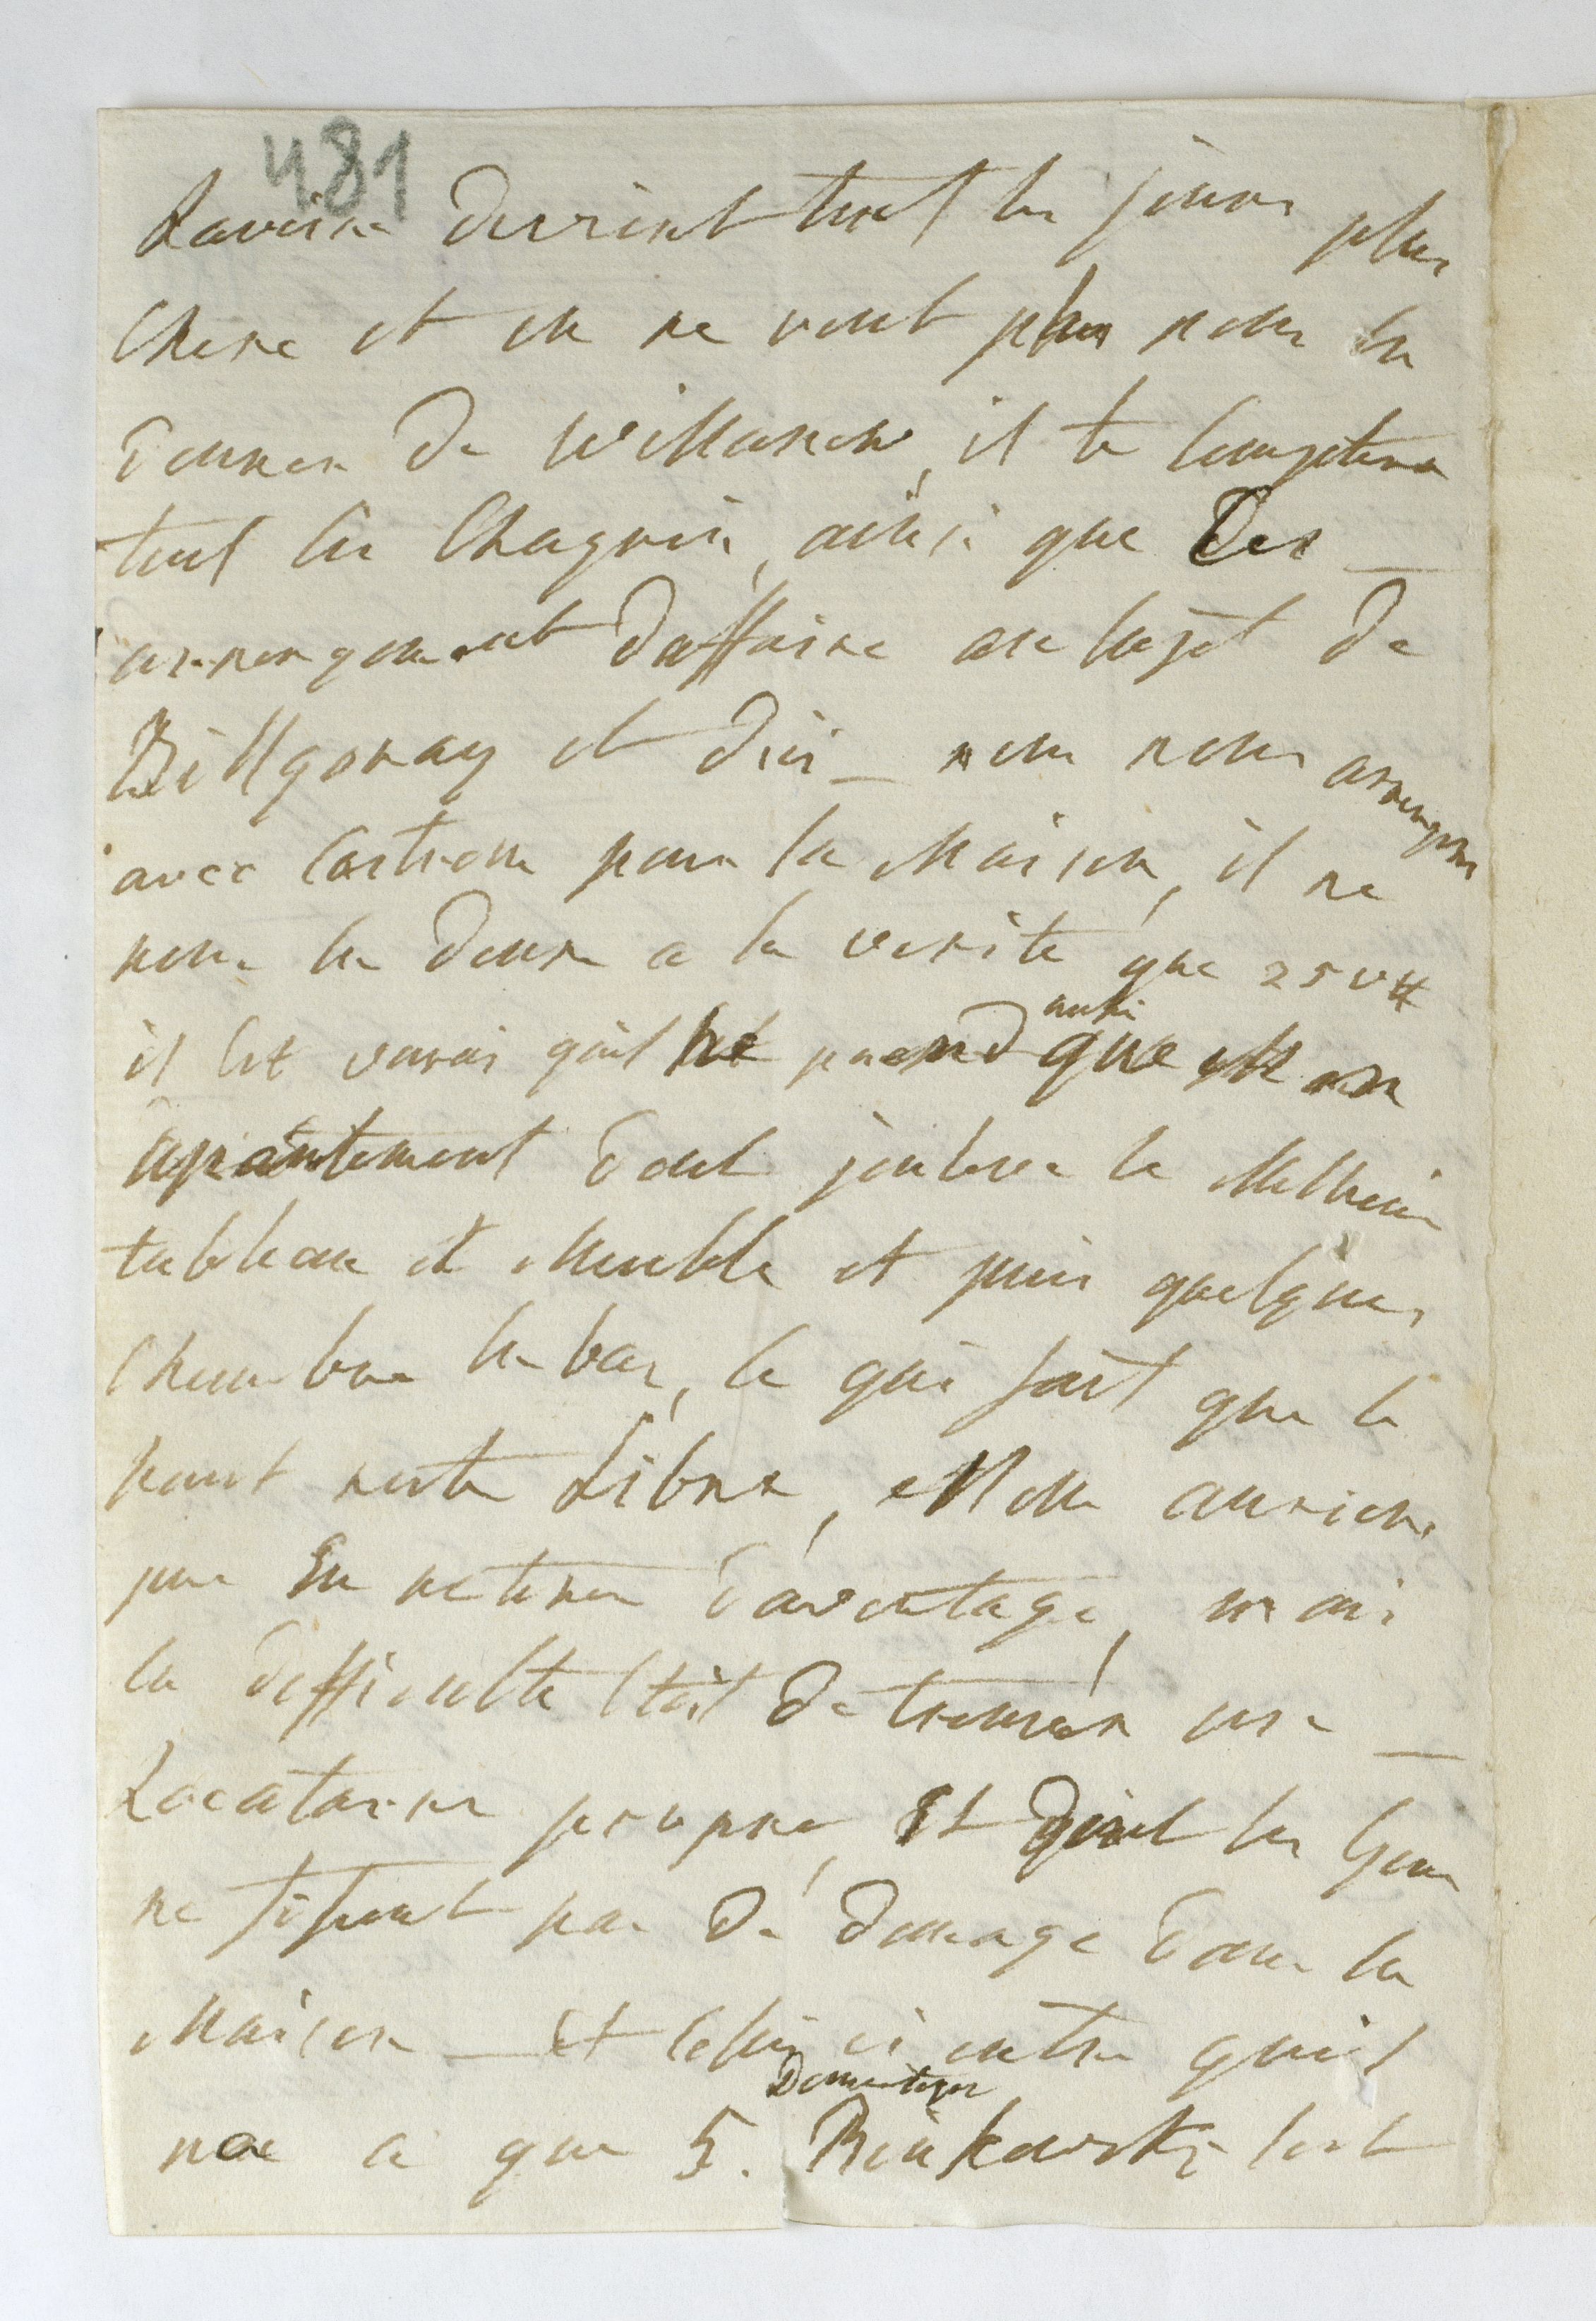 481
Lavoine devient tout les jours plus
Chere et on ne veut plus nous en
donner de Willanow, il te Comptera
tout ses Chagrin, ainsi que des
arrengement daffaire au sujet de
Billgoray et dici _ nous nous arrengons
avec Castrow pour la Maison, il ne
nous en donne a la verite que 250#
il Est vrais quil ne prend aussi que mon
apartement dont jenleve le Mellieur
tableau et Meuble et puis quelques
Chambre en bas, ce qui fait que le
haut reste Libre, Nous aurions
pue En retirer daventage, mais
la difficulté Etoit de trouver une
Locataire propre, Et dont les Gens
ne fissent pas de domage dans la
Maison _ Et Celui ci outre quil
na a que 5. Domestiques Binkowski sert